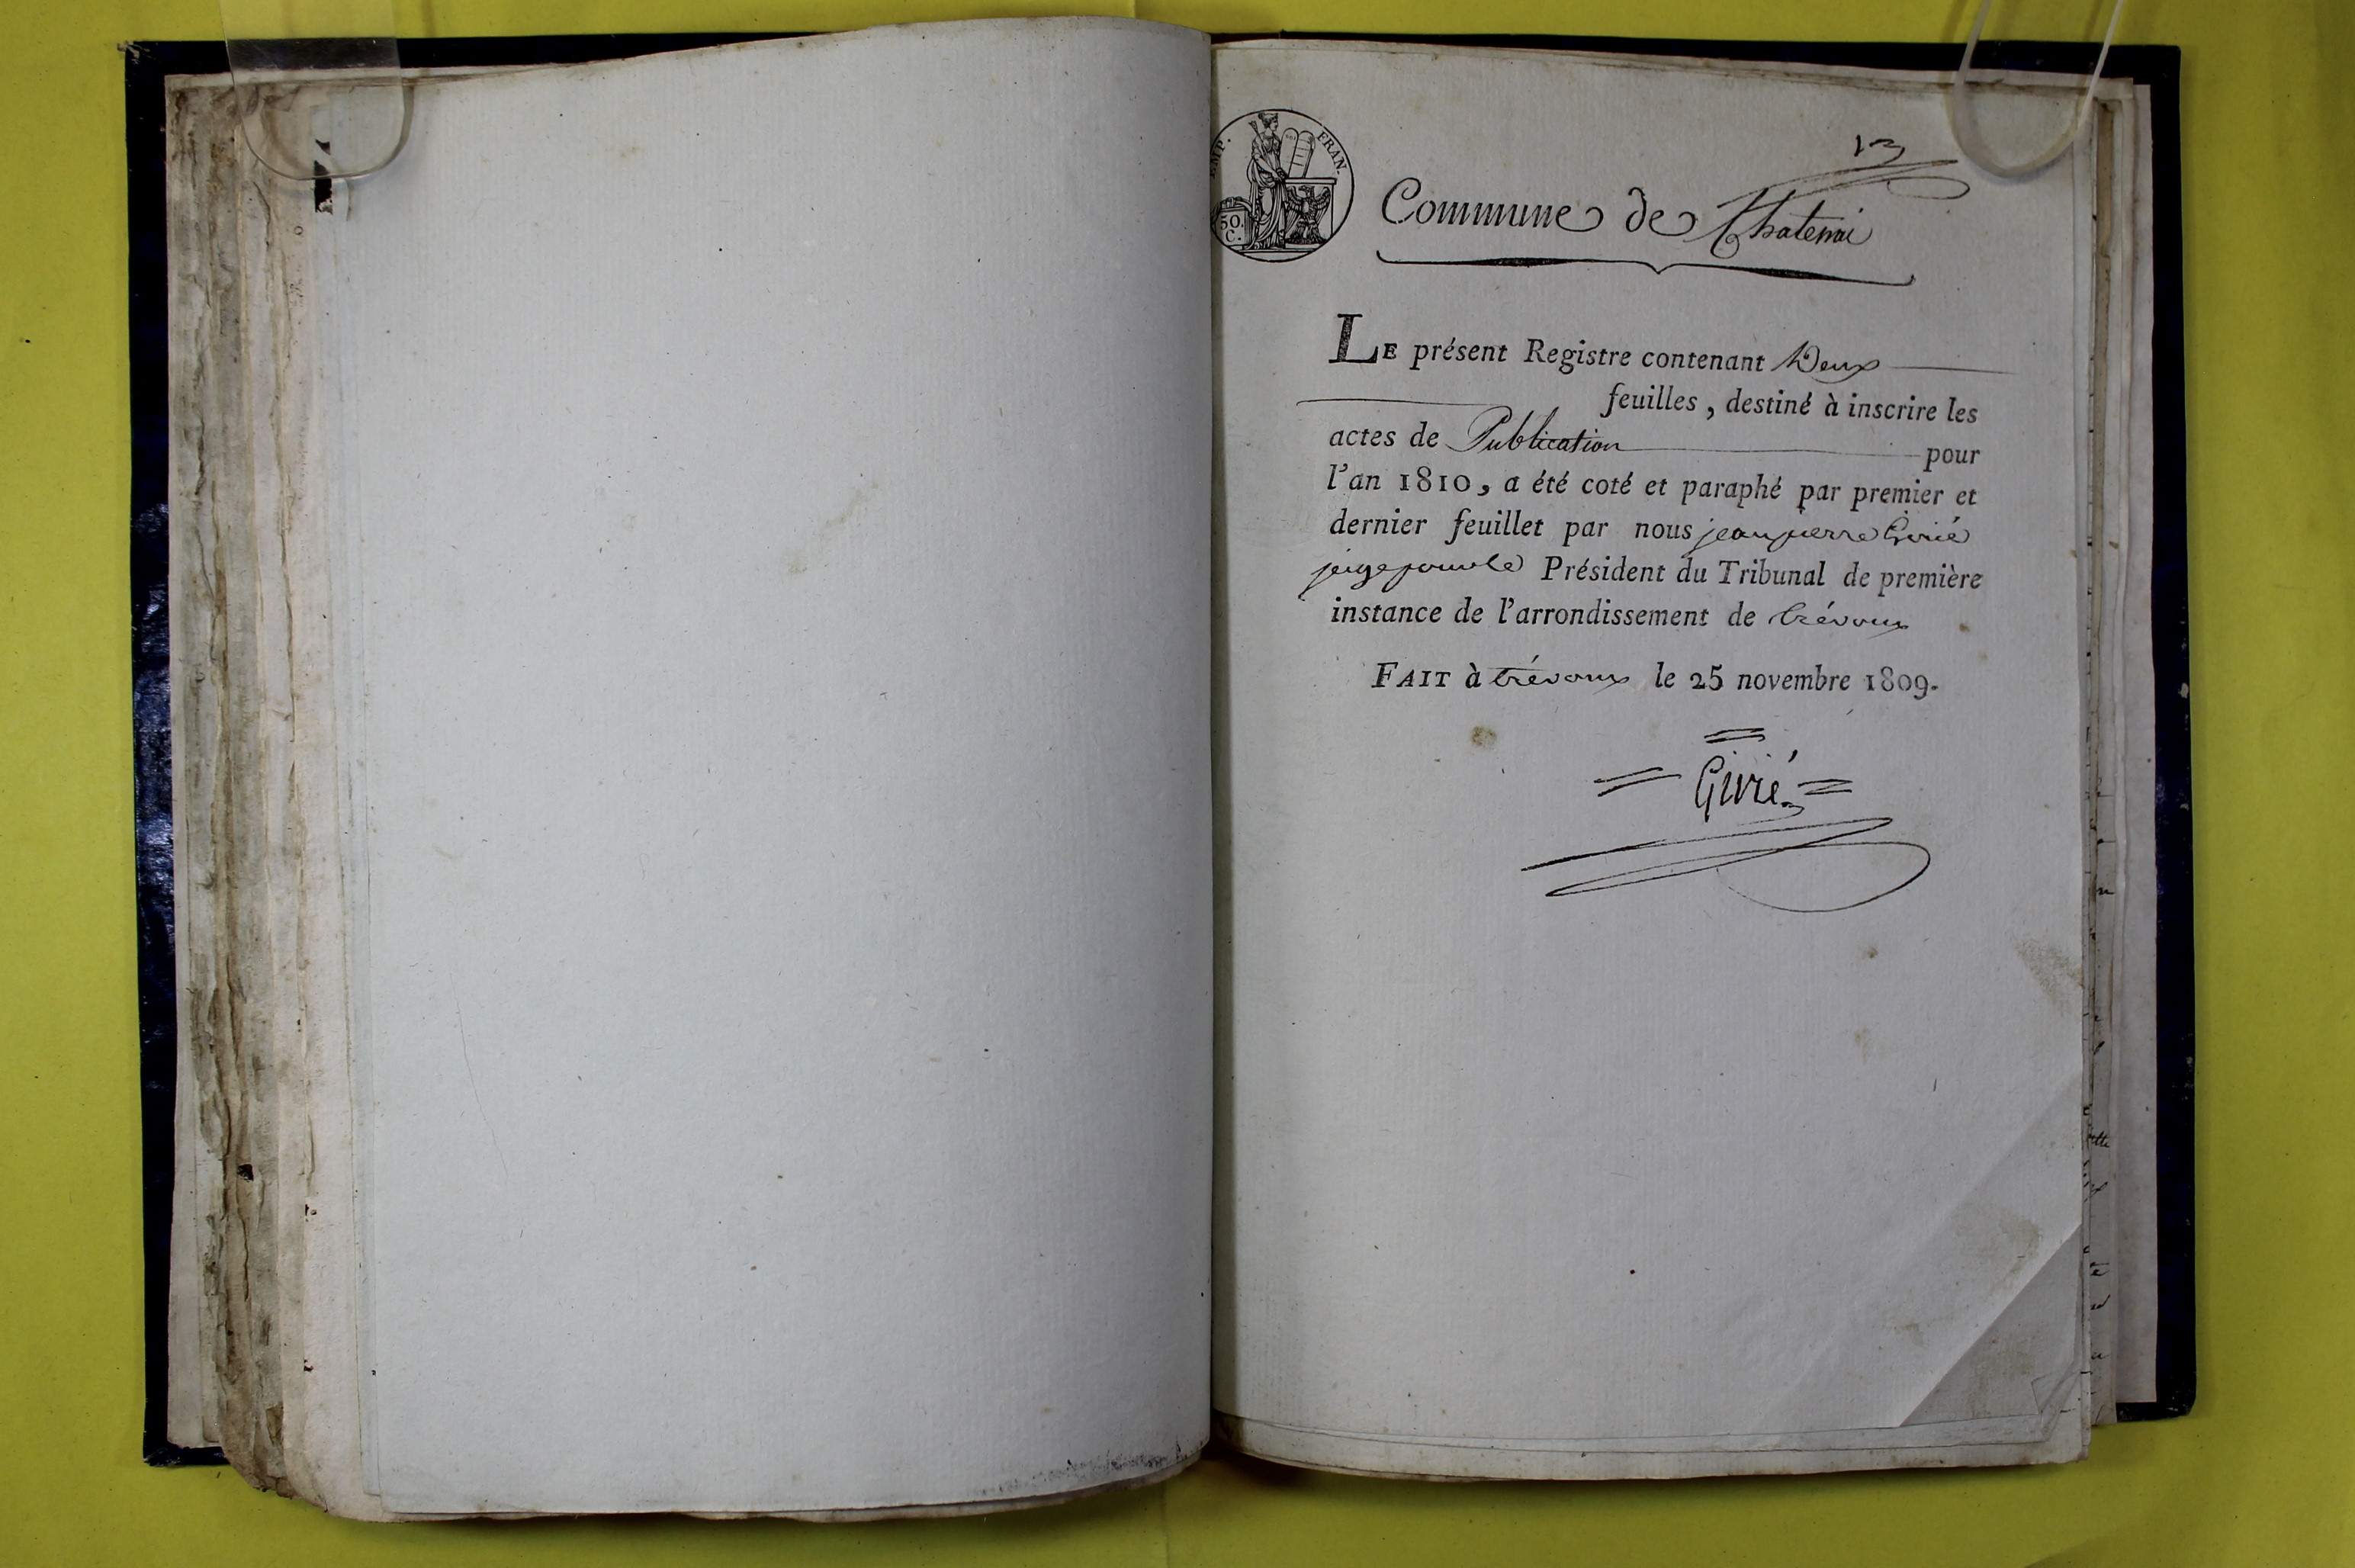 13
EMP. FRAN.
50.
C.
Commune de Chatenai
LE présent Registre contenant Deux
feuilles, destiné à inscrire les
actes de Publication pour
l'an 1810, a été coté et paraphé par premier et
dernier feuillet par nous jean pierre Givié
juge pour le Président du Tribunal de première
instance de l'arrondissement de trévoux
FAIT à trévoux le 25 novembre 1809.
Givié